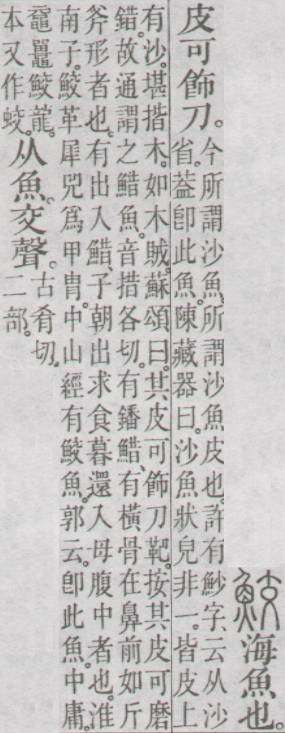 鮫海魚也。
皮可飾刀。
今所謂沙魚。所謂沙魚皮也。許有魦字、云从沙
省。葢卽此魚。陳藏器曰。沙魚狀皃非一。皆皮上
有沙。堪揩木。如木賊。蘇頌曰。其皮可飾刀靶。按其皮可磨
錯。故通謂之䱜魚。音措各切。有鐇䱜、有橫骨在鼻前如斤
斧形者也。有出入䱜、子朝出求食暮還入母腹中者也。淮
南子。鮫革犀兕爲甲冑。中山經有鮫魚。郭云。卽此魚。中庸。
黿鼉鮫龍。
本又作蛟。
从魚。交聲。
古肴切。
二部。